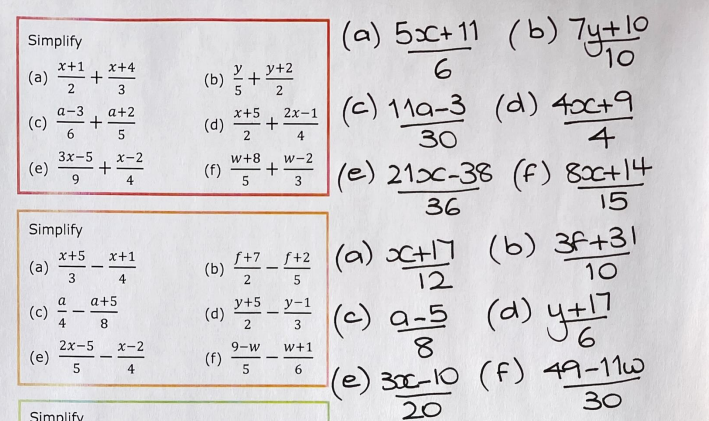 Simplify
(a) \frac{x+1}{2} + \frac{x+4}{3} (b) \frac{y}{5} + \frac{y+2}{2}
(c) \frac{a-3}{6} + \frac{a+2}{5} (d) \frac{x+5}{2} + \frac{2x-1}{4}
(e) \frac{3x-5}{9} + \frac{x-2}{4} (f) \frac{w+8}{5} + \frac{w-2}{3}
(a) \frac{5x+11}{6} (b) \frac{7y+10}{10}
(c) \frac{11a-3}{30} (d) \frac{4x+9}{4}
(e) \frac{21x-38}{36} (f) \frac{8x+14}{15}
Simplify
(a) \frac{x+5}{3} - \frac{x+1}{4} (b) \frac{f+7}{2} - \frac{f+2}{5}
(c) \frac{a}{4} - \frac{a+5}{8} (d) \frac{y+5}{2} - \frac{y-1}{3}
(e) \frac{2x-5}{5} - \frac{x-2}{4} (f) \frac{9-w}{5} - \frac{w+1}{6}
(a) \frac{x+17}{12} (b) \frac{3f+31}{10}
(c) \frac{a-5}{8} (d) \frac{y+17}{6}
(e) \frac{3x-10}{20} (f) \frac{49-11w}{30}
Simplify